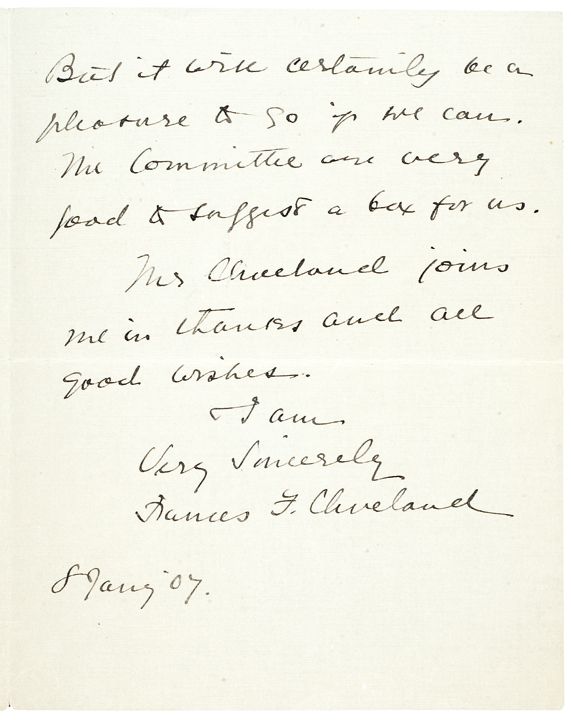 But it will certainly be a
pleasure to go if we can.
The Committee are very
good to suggest a box for us.
Mr Cleveland joins
me in thanks and all
good wishes.
I am
Very Sincerely
Frances F. Cleveland
8 Jany '07.